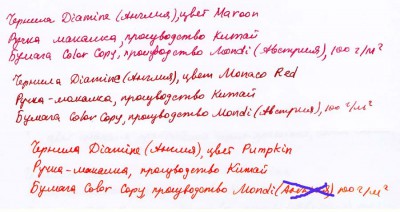 Чернила Diamine (Англия), цвет Maroon
Ручка макалка, производство Китай
Бумага Color Copy, производство Mondi (Австрия), 100 г/м²
Чернила Diamine (Англия), цвет Monaco Red
Ручка-макалка, производство Китай
Бумага Color Copy, производство Mondi (Австрия), 100 г/м²
Чернила Diamine (Англия), цвет Pumpkin
Ручка-макалка, производство Китай
Бумага Color Copy, производство Mondi 100 г/м²